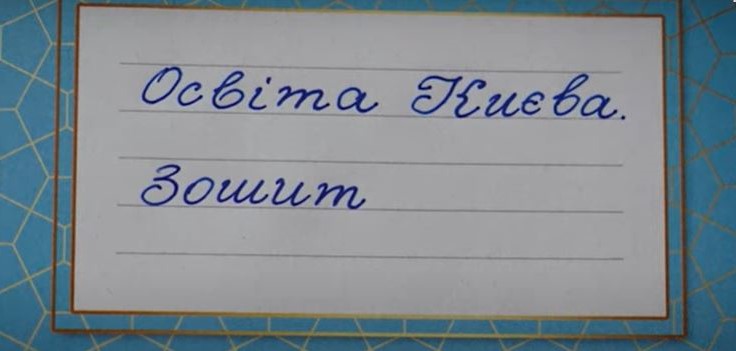 Освіта Києва.
Зошит